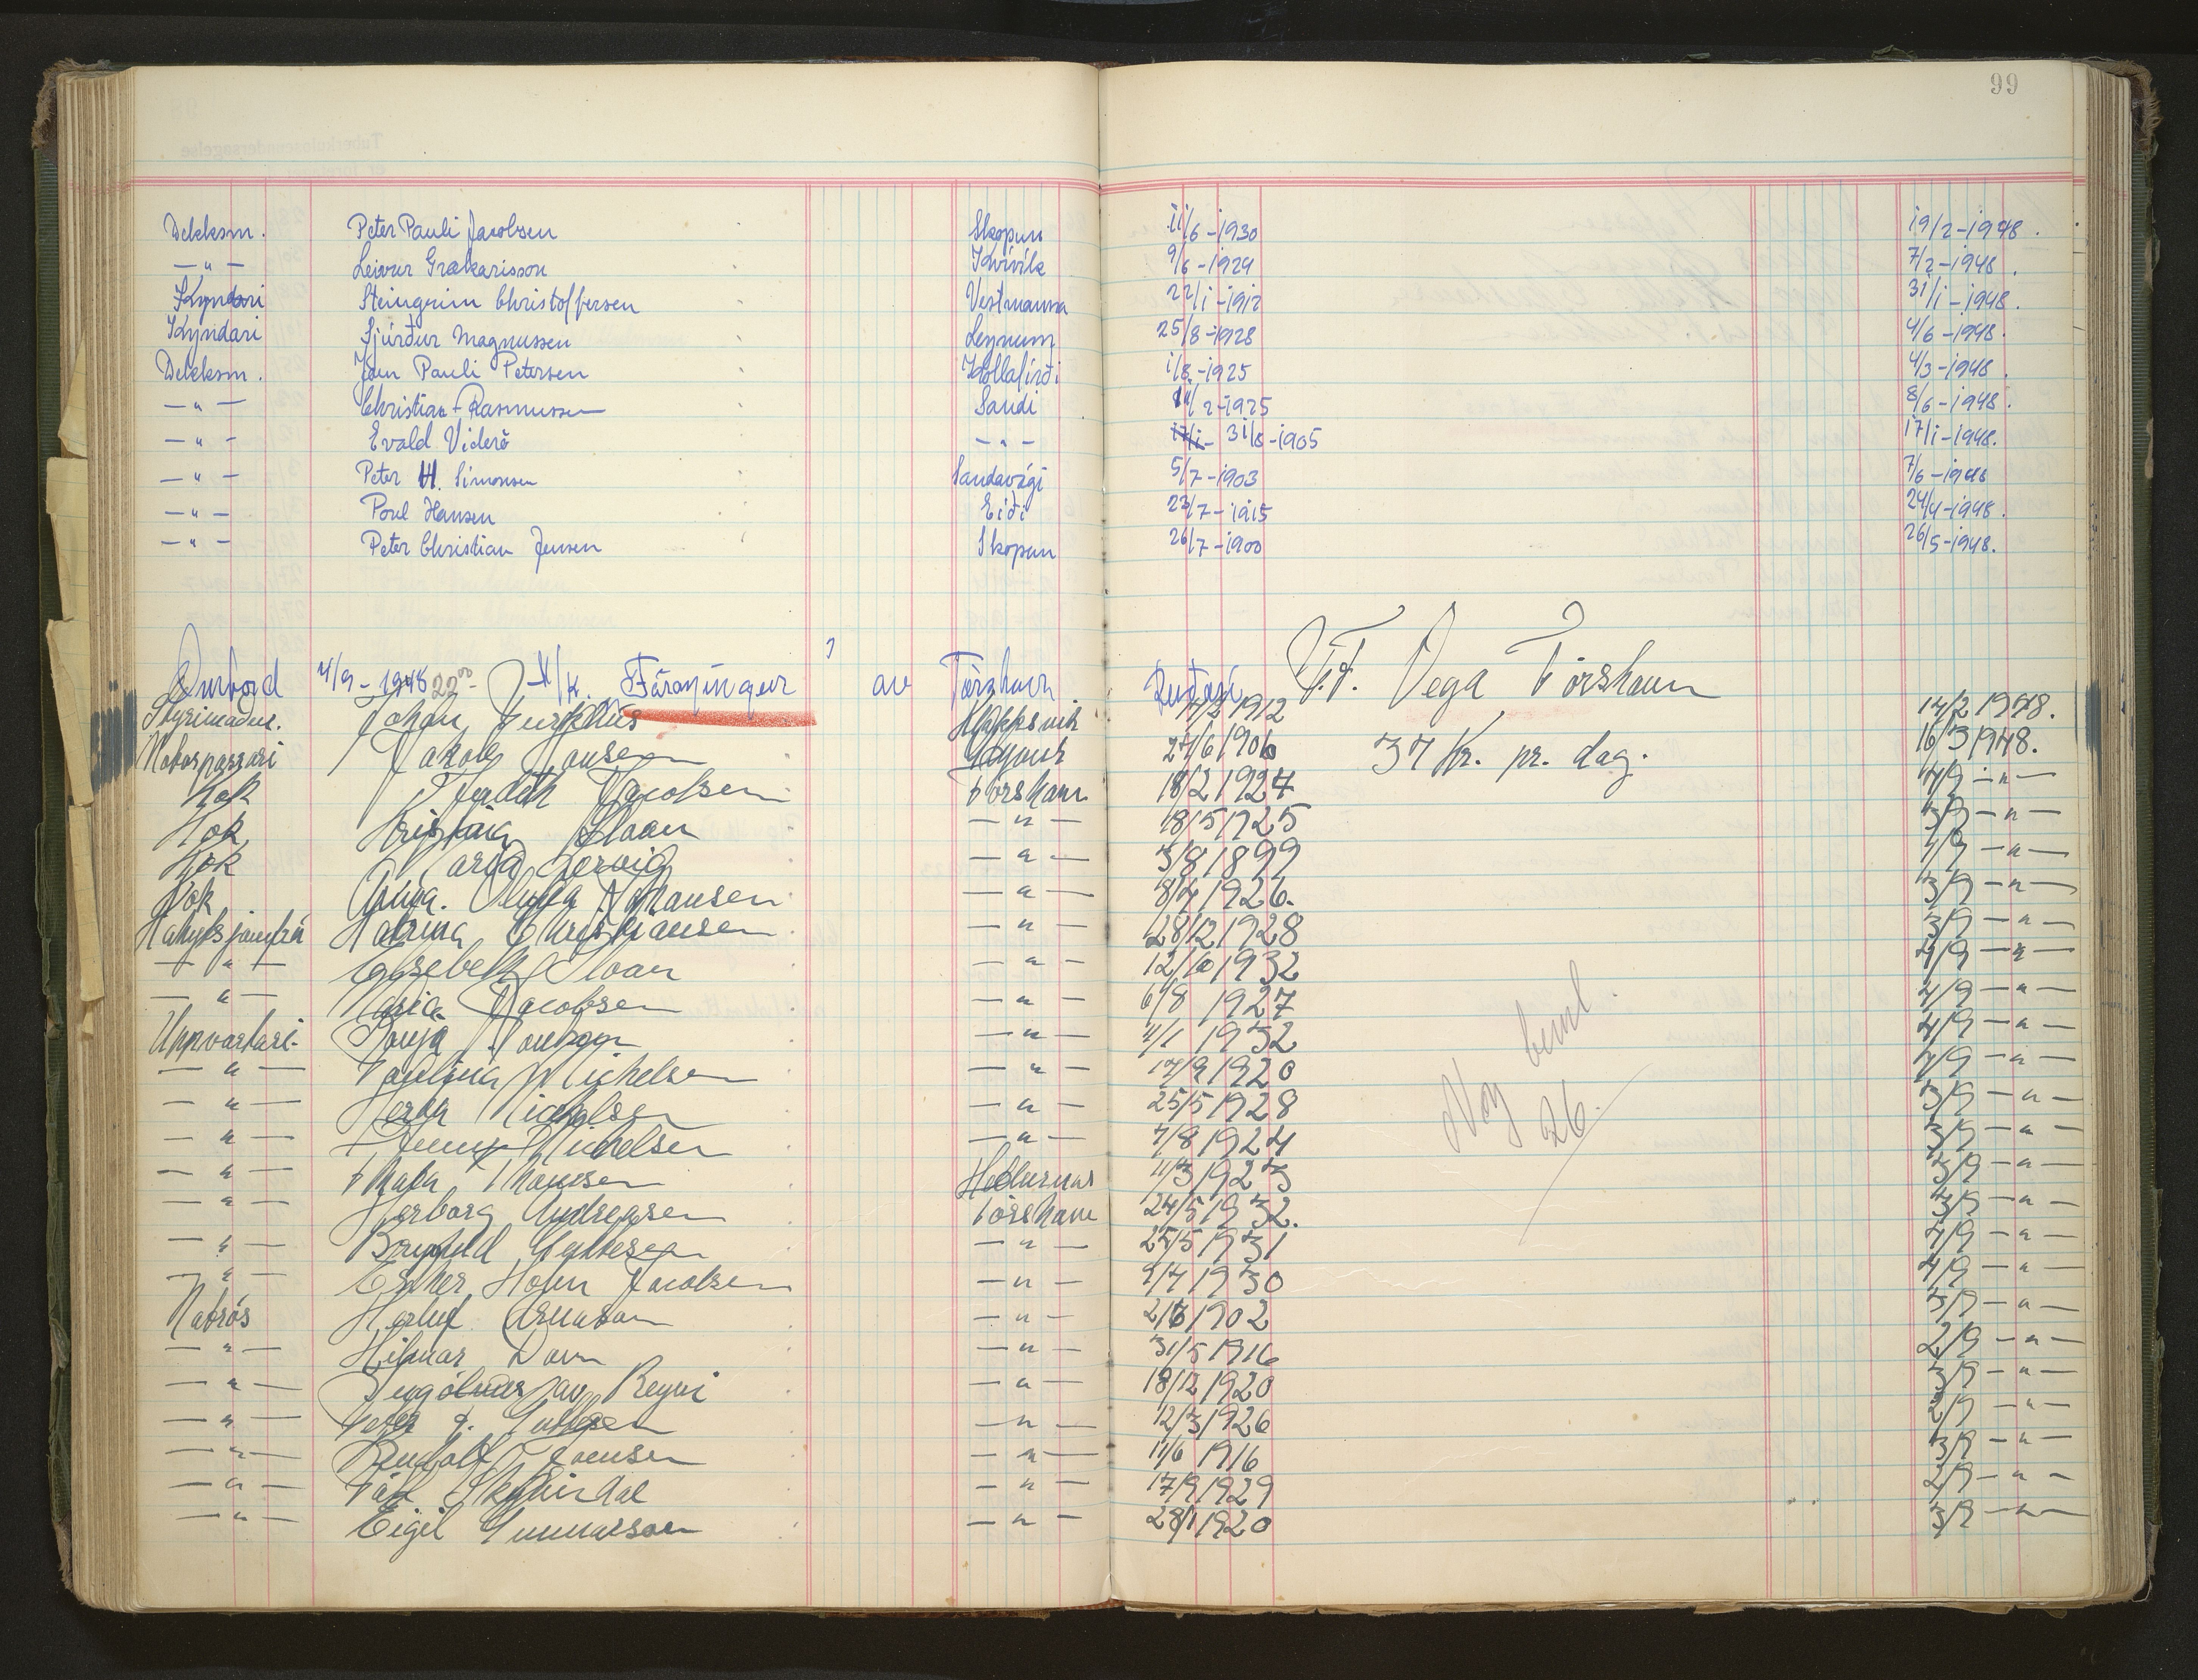 99
Dekksm. Peter Pauli Jacobsen Skopun 11/6-1930 19/2-1948.
-"- Leivur Grækarisson Kvívík 9/6-1929 7/2-1948.
Kyndari Steingrim Christoffersen Vestmanna 22/1-1912 31/1-1948.
Kyndari Sjúrður Magnussen Leynum 25/8-1928 4/6-1948.
Dekksm. Jóan Pauli Petersen Kollafirði 1/8-1925 4/3-1948.
-"- Christian Rasmussen Sandi 2-1925 8/6-1948.
-"- Evald Viderö -"- 31/8-1905 17/1-1948.
-"- Peter H. Simonsen Sandavági 5/7-1903 7/6-1948
-"- Poul Hansen Eiði 23/7-1915 24/4-1948.
-"- Peter Christian Jensen Skopun 26/7-1900 26/5-1948.
Umborð 4/9-1948 M/K. Föroyingur av Tórshavn Vega Tórshavn
Stýrimaður. Johan 1912 14/2 1948.
Motorpassari Jakob Joensen 1906 37 Kr. pr. dag. 16/3 1948.
Kok Jacobsen Tórshavn 18/2 1924 4/9 -"-
Kok Kristina Sloan -"- 18/5 1925 3/9 -"-
Kok -"- 3/8 1899 4/9 -"-
Kok Anna Johansen -"- 8/4 1926. 3/9 -"-
Katrina Christiansen -"- 28/12 1928 3/9 -"-
-"- Elsebeth Sloan -"- 12/10 1932 4/9 -"-
-"- Maria Jacobsen -"- 6/8 1927 4/9 -"-
Uppvartari Sonja -"- 4/1 1932 4/9 -"-
-"- Paulina Michelsen -"- 1920 4/9 -"-
-"- Herta Michelsen -"- 25/5 1928 3/9 -"-
-"- Jenny Michelsen -"- 4/8 1924 3/9 -"-
-"- Thomsen 11/3 1923 3/9 -"-
-"- Herborg Andreasen Tórshavn 24/5 1932. 3/9 -"-
-"- -"- 25/5 1931 4/9 -"-
-"- Ester Holm Jacobsen -"- 1930 4/9 -"-
Matrós Herluf Arnason -"- 1902 3/9 -"-
-"- Hilmar Dam -"- 31/5 1916 2/9 -"-
-"- Ingólvur av Reyni -"- 18/12 1920 3/9 -"-
-"- -"- 12/3 1926 2/9 -"-
-"- Rudolf Joensen -"- 11/6 1916 3/9 -"-
-"- Páll Skarðdal -"- 17/9 1929 2/9 -"-
-"- Eigil Gunnarson -"- 28/1 1920 3/9 -"-
26